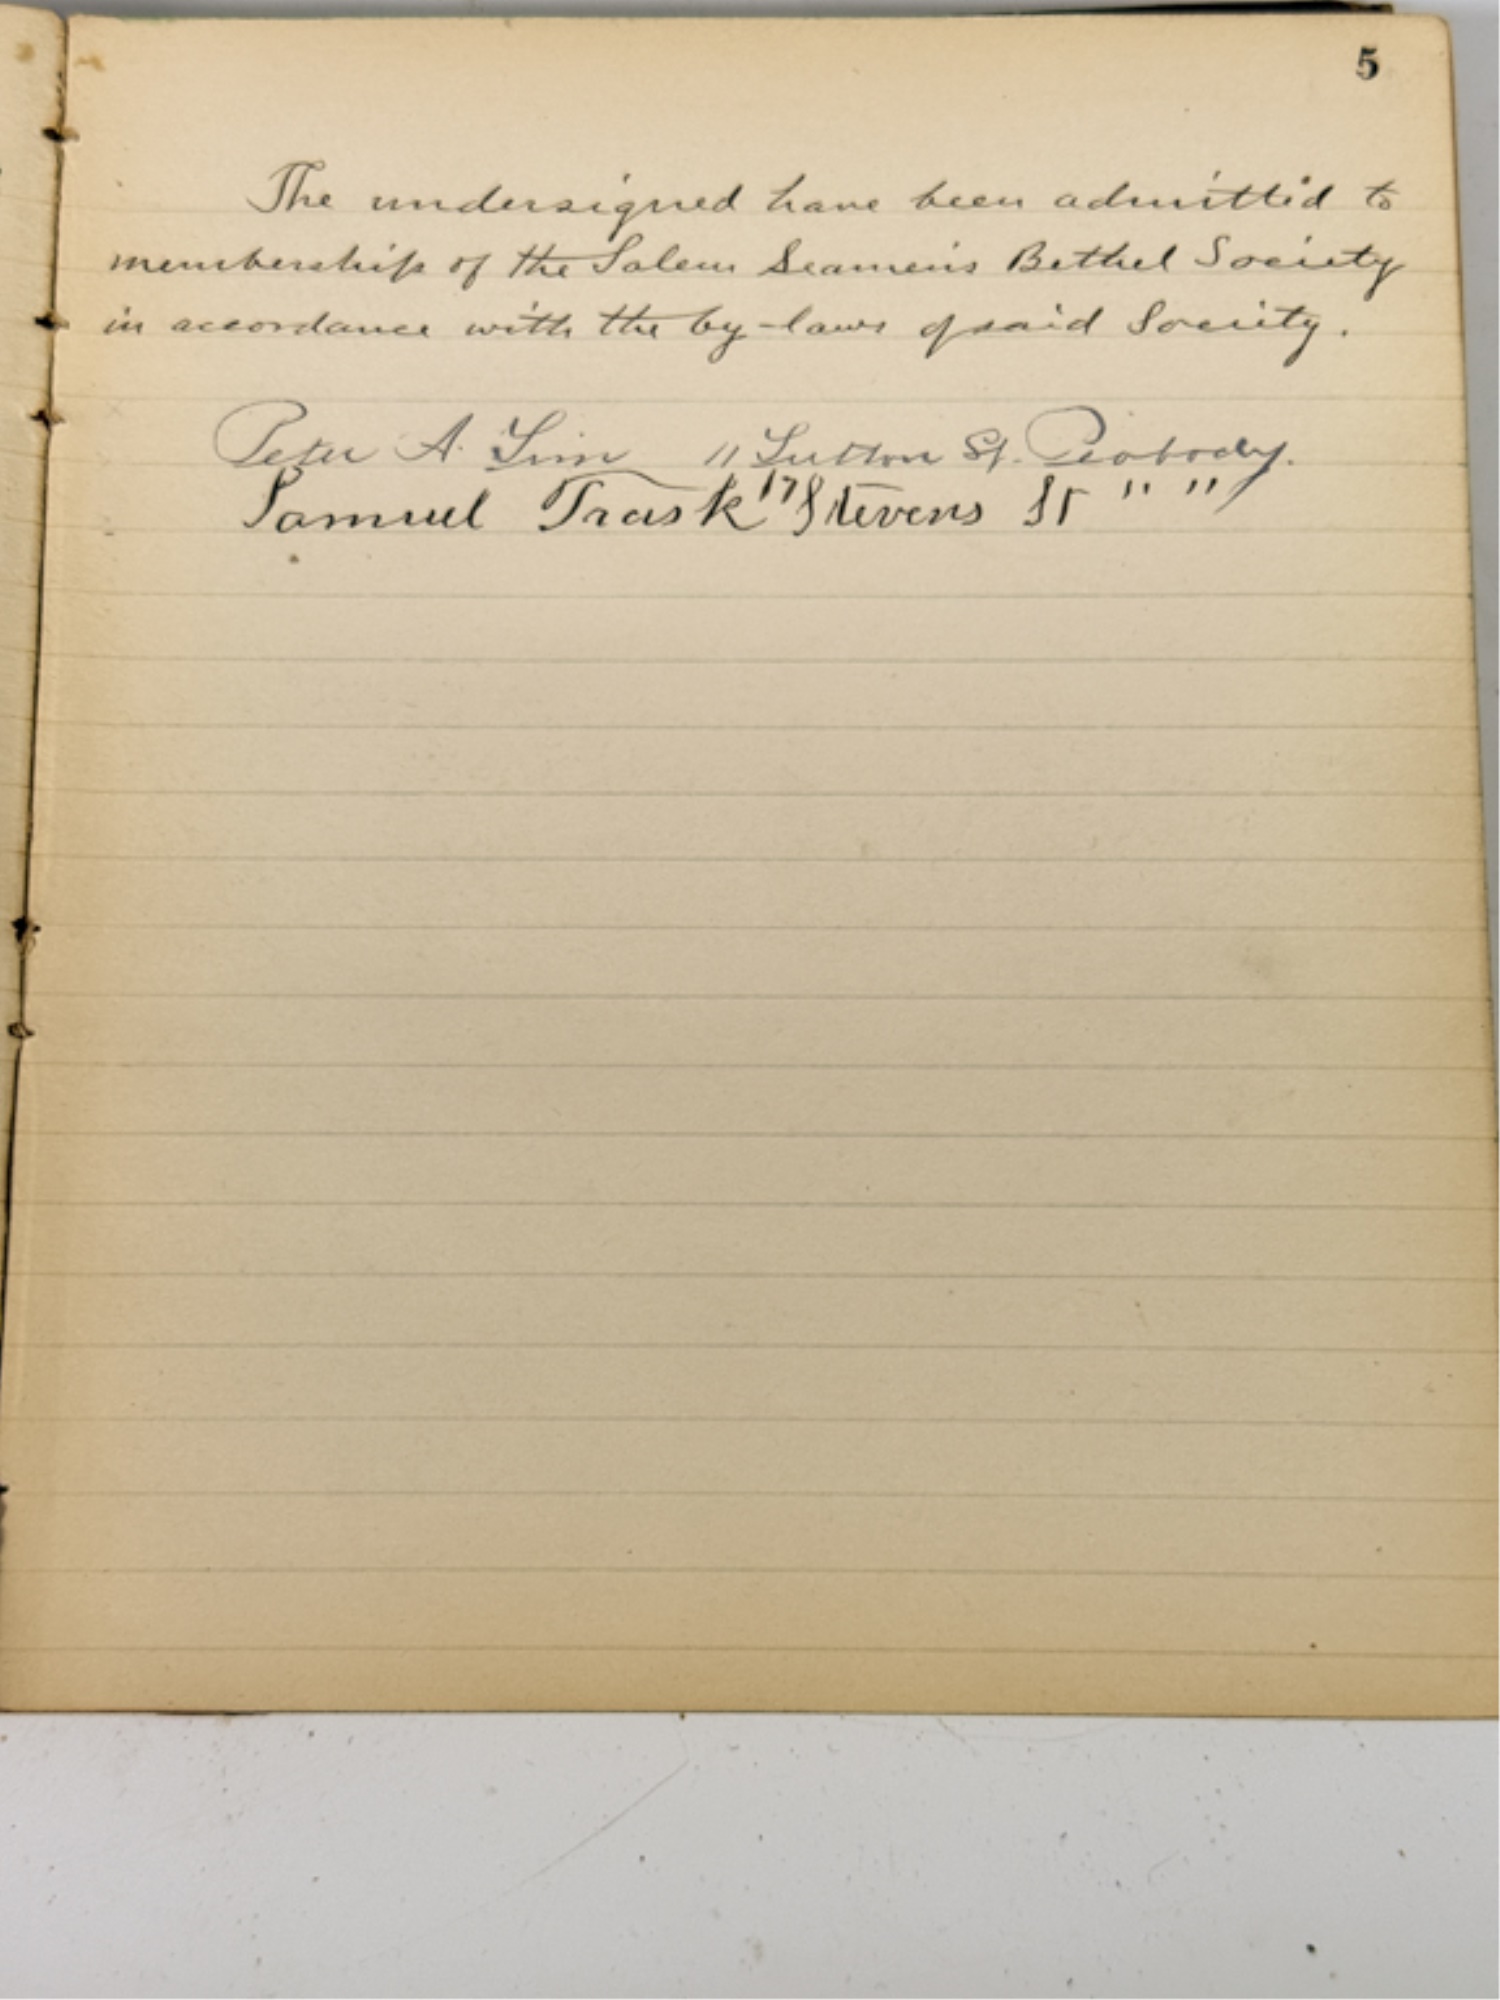 5
The undersigned have been admitted to
membership of the Salem Seamen's Bethel Society
in accordance with the by-laws of said Society.
Peter A. 11 Sutton St. Peabody.
Samuel Trask 17 Stevens St " "